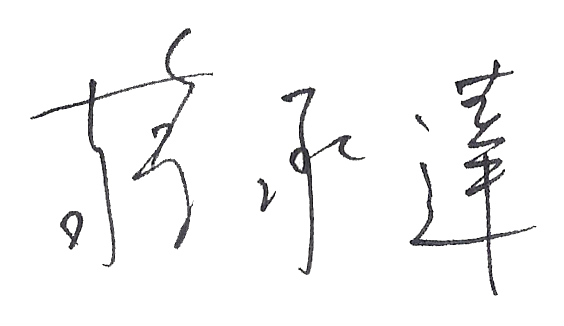 蔣承達